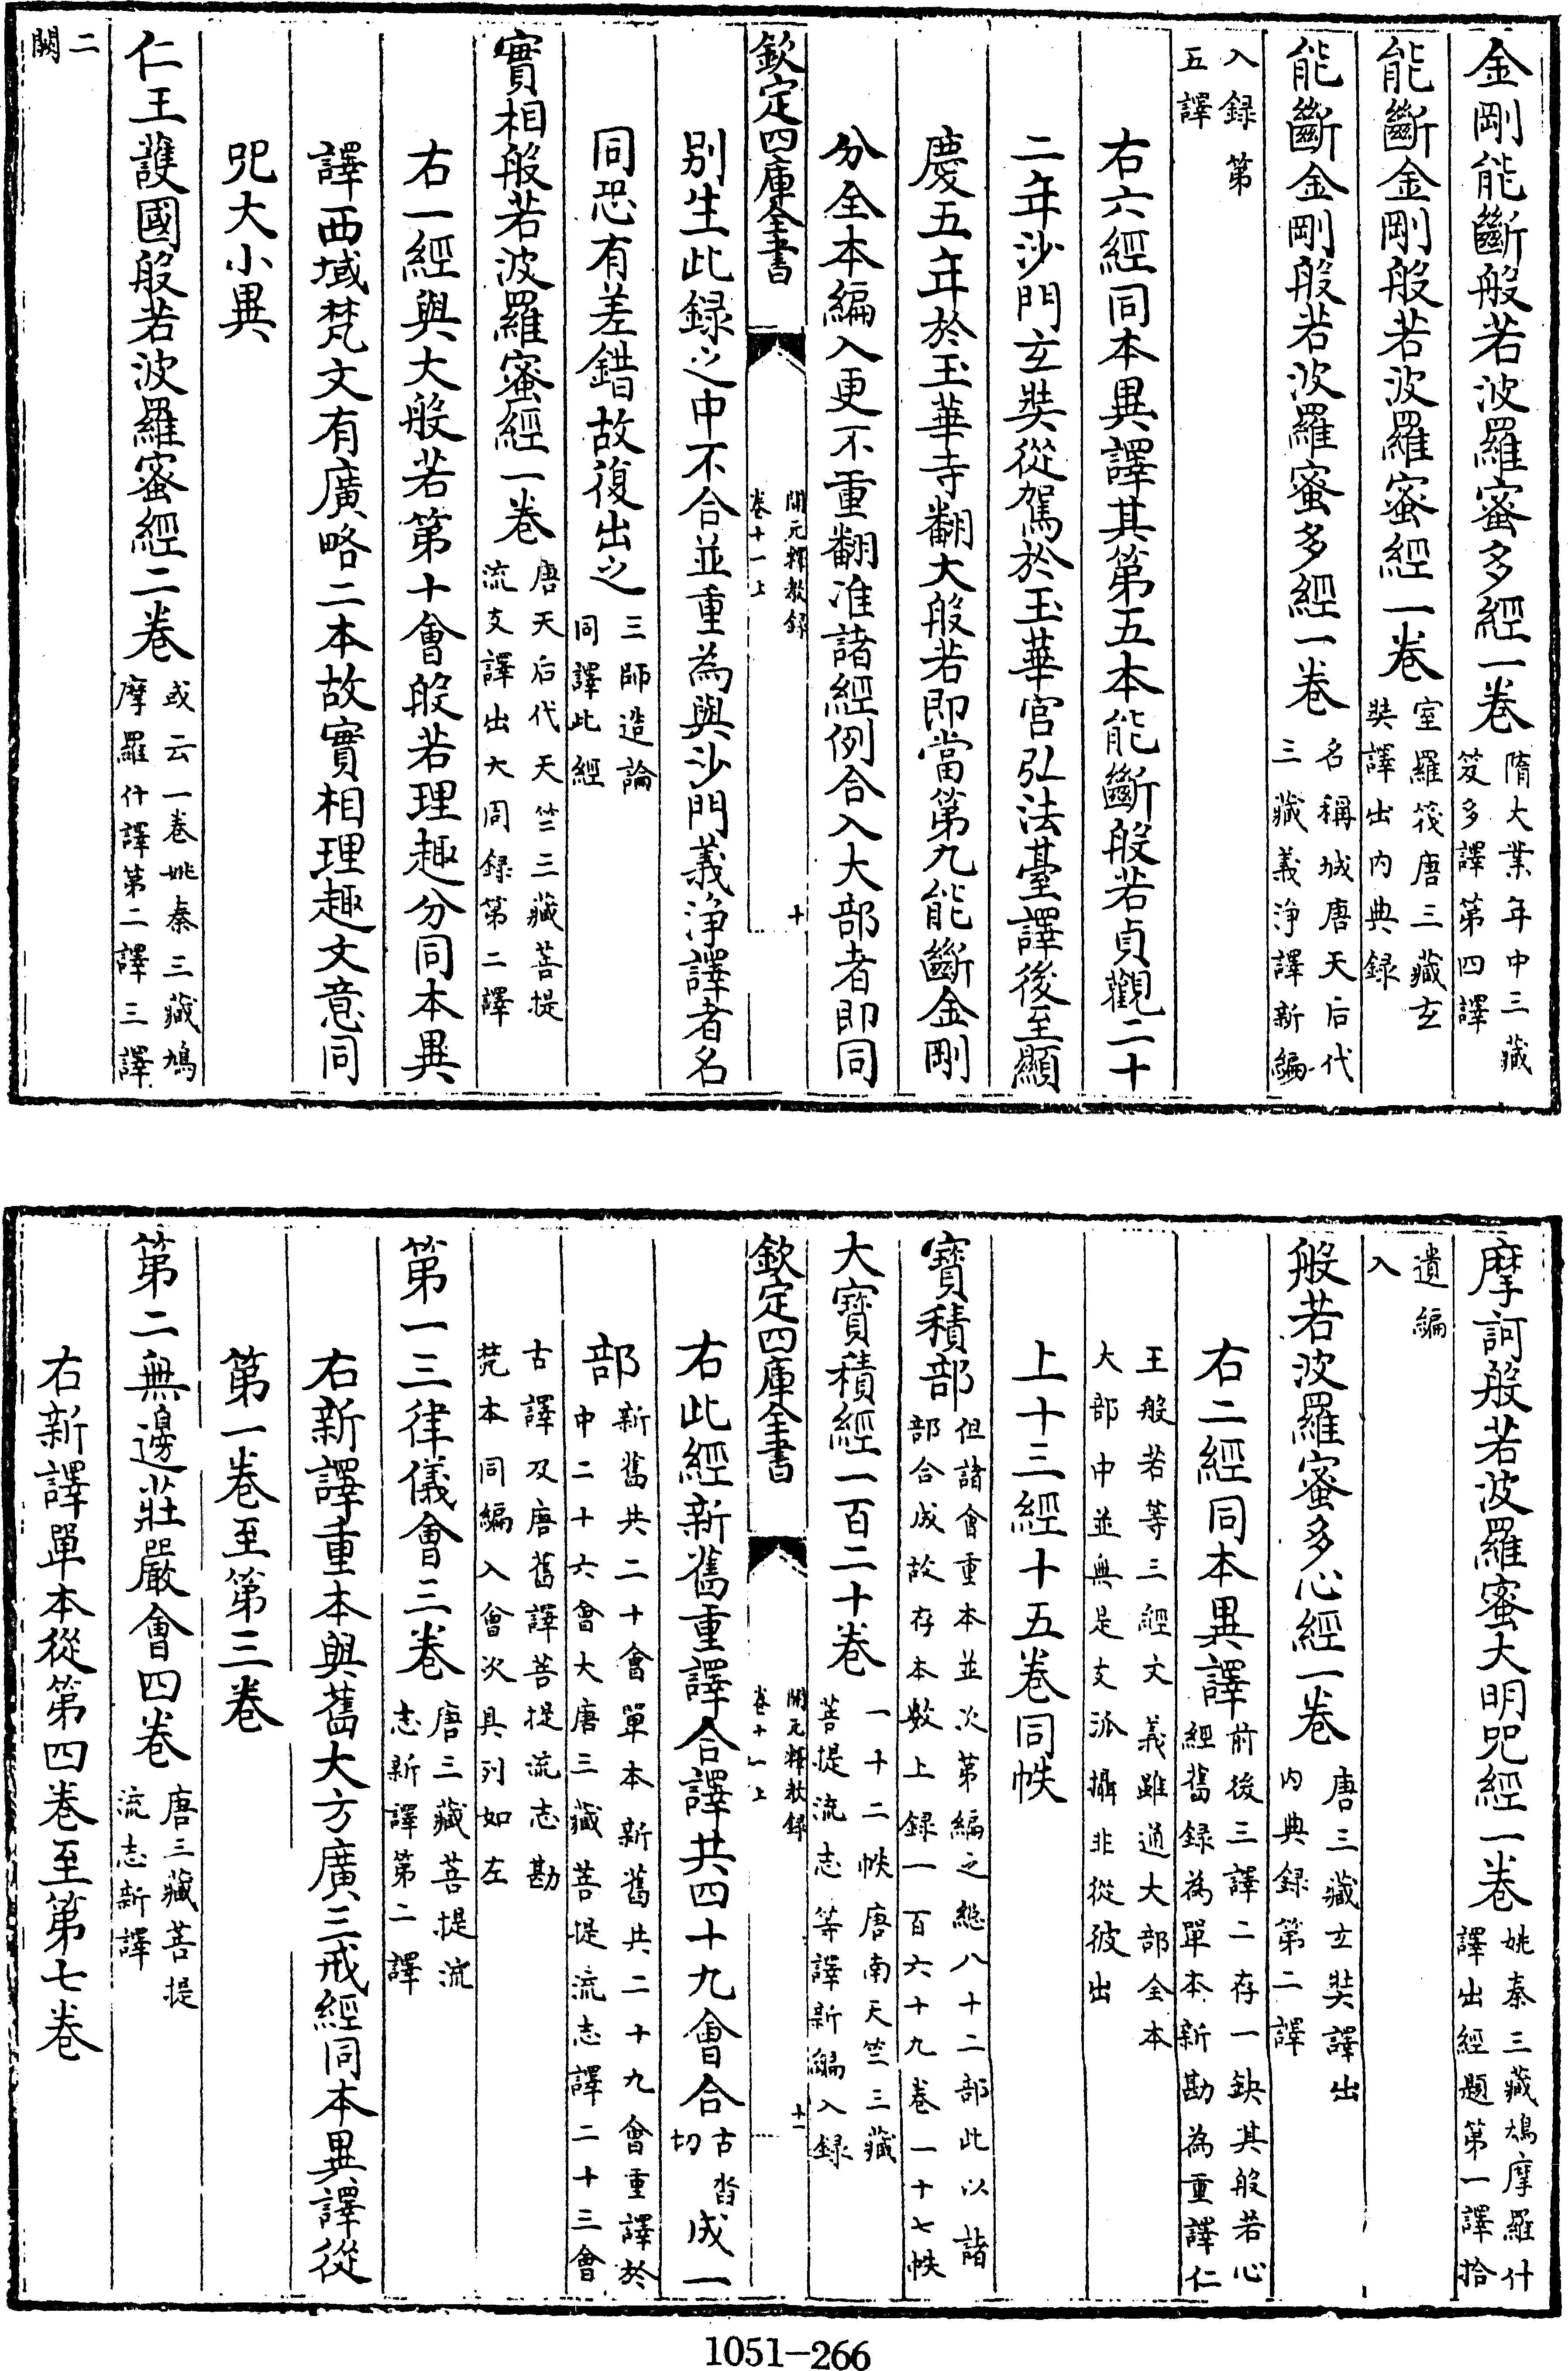 金剛能斷般若波羅蜜多經一卷隋大業年中三藏笈多譯第四譯
能斷金剛般若波羅蜜經一卷室羅筏唐三藏玄奘譯出内典録
能斷金剛般若波羅蜜多經一卷名稱城唐天后代三藏義淨譯新編
入録第五譯
右六經同本異譯其第五本能斷般若貞觀二十
二年沙門玄奘從駕於玉華宮弘法臺譯後至顯
慶五年於玉華寺翻大般若即當第九能斷金剛
分全本編入更不重翻准諸經例合入大部者即同
欽定四庫全書 開元釋教録卷十一上 十
别生此録之中不合並重為與沙門義淨譯者名
同恐有差錯故復出之三師造論同譯此經
實相般若波羅蜜經一卷唐天后代天竺三藏菩提流支譯出大周録第二譯
右一經與大般若第十會般若理趣分同本異
譯西域梵文有廣略二本故實相理趣文意同
咒大小異
仁王護國般若波羅蜜經二卷或云一卷姚秦三藏鳩摩羅什譯第二譯三譯
二闕
摩訶般若波羅蜜大明咒經一卷姚秦三藏鳩摩羅什譯出經題第一譯拾
遺編入
般若波羅蜜多心經一卷唐三藏玄奘譯出内典録第二譯
右二經同本異譯前後三譯二存一缺其般若心經舊録為單本新勘為重譯仁
王般若等三經文義雖通大部全本大部中並無是支派攝非從彼出
上十三經十五卷同帙
寶積部但諸會重本並次第編之總八十二部此以諸部合成故存本數上録一百六十九卷一十七帙
大寶積經一百二十卷一十二帙唐南天竺三藏菩提流志等譯新編入録
欽定四庫全書 開元釋教録卷十一上 十一
右此經新舊重譯合譯共四十九會合古沓切成一
部新舊共二十會單本新舊共二十九會重譯於中二十六會大唐三藏菩提流志譯二十三會
古譯及唐舊譯菩提流志勘梵本同編入會次具列如左
第一三律儀會三卷唐三藏菩提流志新譯第二譯
右新譯重本與舊大方廣三戒經同本異譯從
第一卷至第三卷
第二無邊莊嚴會四卷唐三藏菩提流志新譯
右新譯單本從第四卷至第七卷
1051-266